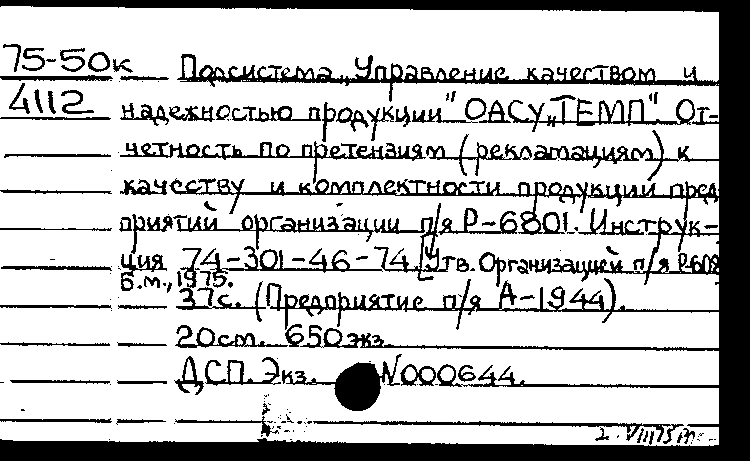 75-50к Подсистема „Управление качеством и
4112 надежностью продукции" ОАСУ „ТЕМП". От-
четность по претензиям (рекламациям) к
качеству и комплектности продукции пред
приятий организации п/я Р-6801. Инструк-
ция 74-301-46-74. [Утв. Организацией п/я
Б.м., 1975.
37с. (Предприятие п/я А-1944).
20см. 650 экз.
ДСП. Экз. N000644.
2. VIII 75